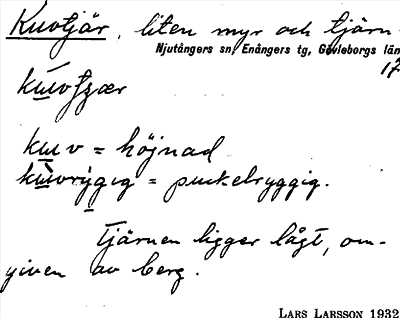 Kuvtjär, liten myr och tjärn.
Njutångers sn, Enångers tg, Gävleborgs län
17
kuv = höjnad
kuvrygig = puckelryggig.
tjärnen ligger lågt, om-
given av berg.
LARS LARSSON 1932